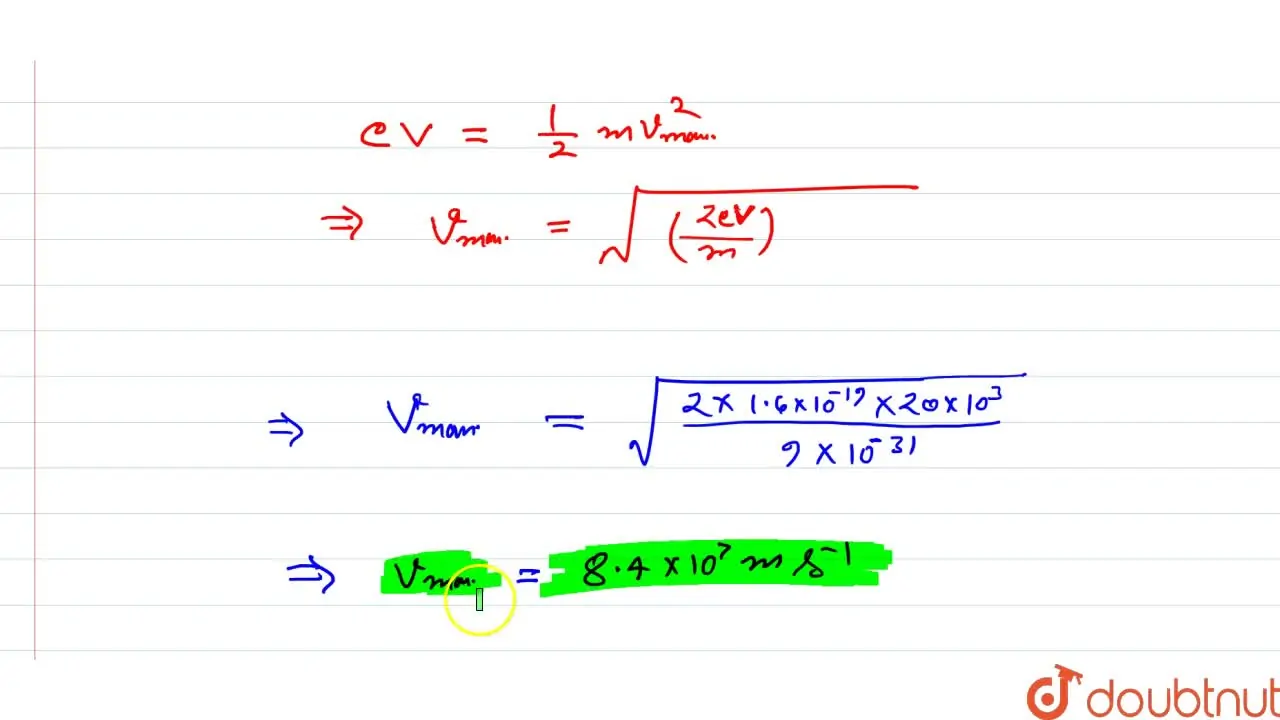 eV = 1/2 mv²max.
⇒ vmax. = √(2eV/m)
⇒ vmax = √(2 × 1.6 × 10⁻¹⁹ × 20 × 10³ / 9 × 10⁻³¹)
⇒ vmax. = 8.4 × 10⁷ m s⁻¹
doubtnut